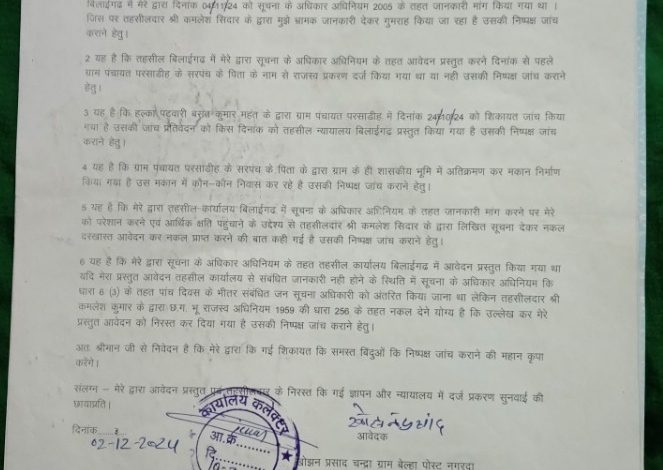 बिलाईगढ में मेरे द्वारा दिनांक 04/11/24 को सूचना के अधिकार अधिनियम 2005 के तहत जानकारी मांग किया गया था ।
जिस पर तहसीलदार श्री कमलेश सिदार के द्वारा मुझे भ्रामक जानकारी देकर गुमराह किया जा रहा है उसकी निष्पक्ष जांच
कराने हेतु।
2 यह है कि तहसील बिलाईगढ में मेरे द्वारा सूचना के अधिकार अधिनियम के तहत आवेदन प्रस्तुत करने दिनांक से पहले
ग्राम पंचायत परसाडीह के सरपंच के पिता के नाम से राजस्व प्रकरण दर्ज किया गया था या नही उसकी निष्पक्ष जांच कराने
हेतु।
3 यह है कि हल्का पटवारी बसंत कुमार महंत के द्वारा ग्राम पंचायत परसाडीह में दिनांक 24/10/24 को शिकायत जांच किया
गया है उसकी जांच प्रतिवेदन को किस दिनांक को तहसील न्यायालय बिलाईगढ प्रस्तुत किया गया है उसकी निष्पक्ष जांच
कराने हेतु।
4 यह है कि ग्राम पंचायत परसाडीह के सरपंच के पिता के द्वारा ग्राम के ही शासकीय भूमि में अतिक्रमण कर मकान निर्माण
किया गया है उस मकान में कौन-कौन निवास कर रहे है उसकी निष्पक्ष जांच कराने हेतु।
5 यह है कि मेरे द्वारा तहसील-कार्यालय बिलाईगढ में सूचना के अधिकार अधिनियम के तहत जानकारी मांग करने पर मेरे
को परेशान करने एवं आर्थिक क्षति पहुंचाने के उद्देश्य से तहसीलदार श्री कमलेश सिदार के द्वारा लिखित सूचना देकर नकल
दरखास्त आवेदन कर नकल प्राप्त करने की बात कही गई है उसकी निष्पक्ष जांच कराने हेतु।
6 यह है कि मेरे द्वारा सूचना के अधिकार अधिनियम के तहत तहसील कार्यालय बिलाईगढ में आवेदन प्रस्तुत किया गया था
यदि मेरा प्रस्तुत आवेदन तहसील कार्यालय से संबधित जानकारी नही होने के स्थिति में सूचना के अधिकार अधिनियम कि
धारा 6 (3) के तहत पांच दिवस के भीतर संबधित जन सूचना अधिकारी को अंतरित किया जाना था लेकिन तहसीलदार श्री
कमलेश कुमार के द्वारा छ.ग. भू राजस्व अधिनियम 1959 की धारा 256 के तहत नकल देने योग्य है कि उल्लेख कर मेरे
प्रस्तुत आवेदन को निरस्त कर दिया गया है उसकी निष्पक्ष जांच कराने हेतु।
अतः श्रीमान जी से निवेदन है कि मेरे द्वारा कि गई शिकायत कि समस्त बिंदुओं कि निष्पक्ष जांच कराने की महान कृपा
करेंगे।
संलग्न – मेरे द्वारा आवेदन प्रस्तुत एवं तहसीलदार के निरस्त कि गई ज्ञापन और न्यायालय में दर्ज प्रकरण सुनवाई की
छायाप्रति।
कार्यालय कलेक्टर
दिनांक
02-12-2024
आ.क्र.
दि.
आवेदक
खोझन प्रसाद चन्द्रा ग्राम बेल्हा पोस्ट नगरदा